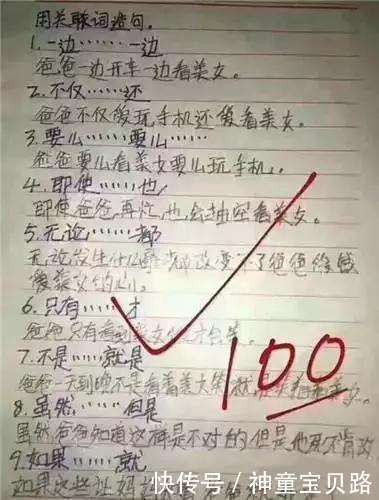 用关联词造句.
1.一边……一边
爸爸一边开车一边看美女。
2.不仅……还
爸爸不仅爱玩手机还爱看美女。
3.要么……要么……
爸爸要么看美女要么玩手机。
4.即使……也
即使爸爸再忙,也会抽空看美女。
5.无论……都
无论发生什么 都改变不了爸爸
爱美女的心。
6.只有……才
爸爸只有看到美女 才会笑。
7.不是……就是
爸爸一天到晚不是看着美女笑就是
8.虽然……但是
虽然爸爸知道这样是不对的,但是他死不
9.如果……就
如果这些让妈妈
100
快传号 / 神童宝贝路